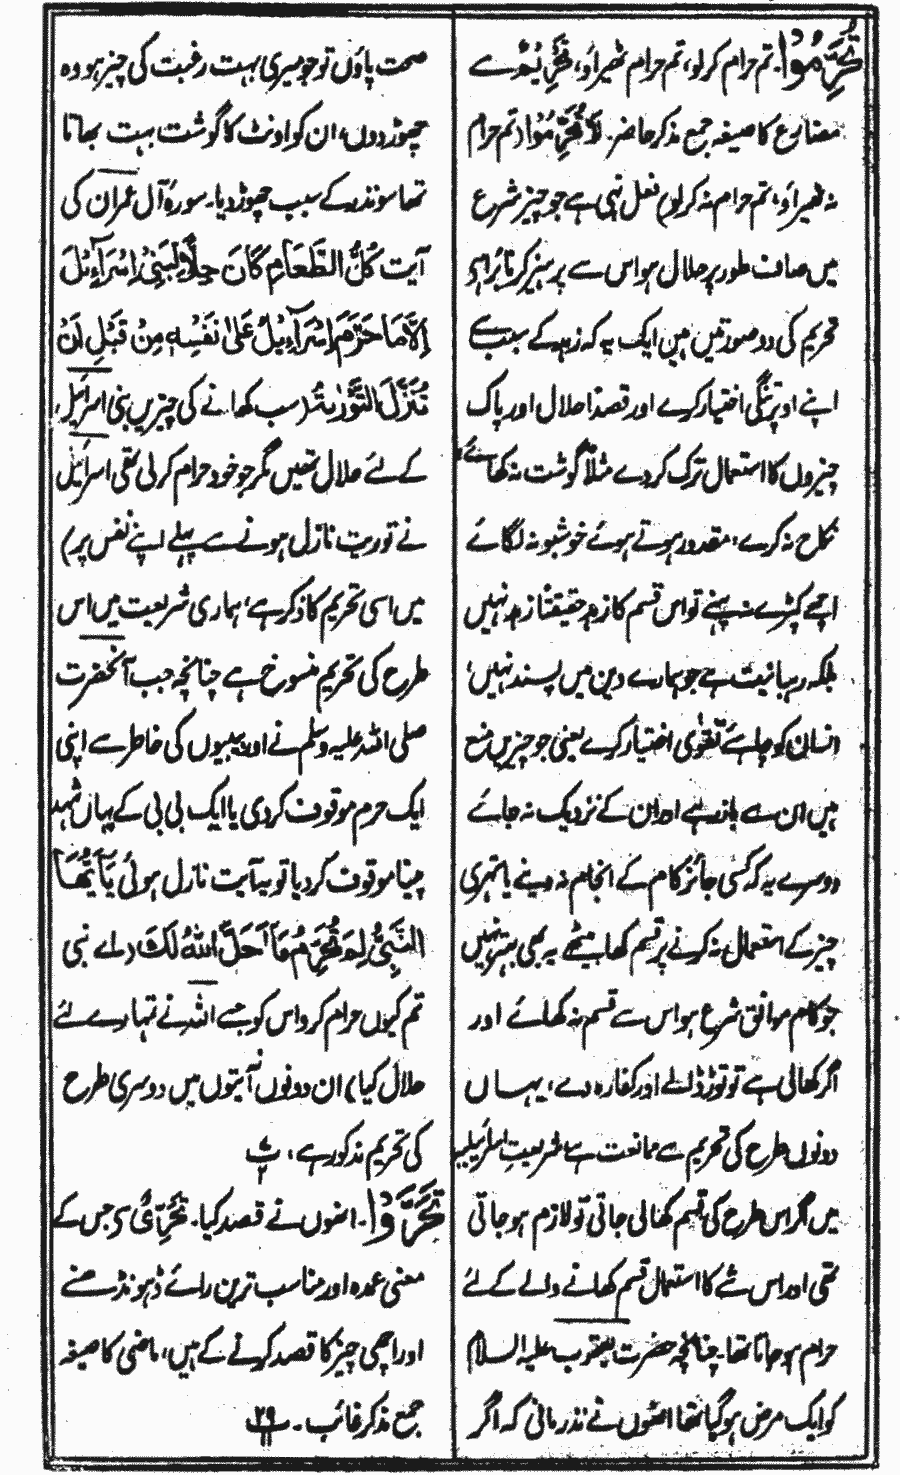 تُحَرِّمُوْا۔ تم حرام کرلو، تم حرام ٹھیراؤ، تَحْرِیْمٌ سے
مضارع کا صیغہ جمع مذکر حاضر۔ لَا تُحَرِّمُوْا (تم حرام
نہ ٹھیراؤ، تم حرام نہ کرلو) فعل نہی ہے جو چیز شرع
میں صاف طور پر حلال ہو اس سے پرہیز کرنا بُرا ہے
تحریم کی دو صورتیں ہیں ایک یہ کہ زہد کے سبب سے
اپنے اوپر تنگی اختیار کرے اور قصدًا حلال اور پاک
چیزوں کا استعمال ترک کردے مثلًا گوشت نہ کھائے،
نکاح نہ کرے، مقدور ہوتے ہوئے خوشبو نہ لگائے
اچھے کپڑے نہ پہنے تو اس قسم کا زہد حقیقتًا زہد نہیں
بلکہ رہبانیت ہے جو ہمارے دین میں پسند نہیں،
انسان کو چاہئے تقوٰی اختیار کرے یعنی جو چیزیں منع
ہیں ان سے باز رہے اور ان کے نزدیک نہ جائے
دوسرے یہ کہ کسی جائز کام کے انجام نہ دینے یا ستھری
چیز کے استعمال نہ کرنے پر قسم کھا بیٹھے یہ بھی بہتر نہیں
جو کام موافق شرع ہو اس سے قسم نہ کھائے اور
اگر کھالی ہے تو توڑ ڈالے اور کفارہ دے، یہاں
دونوں طرح کی تحریم سے ممانعت ہے شریعتِ اسرائیلیہ
میں اگر اس طرح کی قسم کھالی جاتی تو لازم ہوجاتی
تھی اور اس شے کا استعمال قسم کھانے والے کے لئے
حرام ہوجاتا تھا۔ چنانچہ حضرت یعقوب علیہ السلام
کو ایک مرض ہوگیا تھا انھوں نے نذر مانی کہ اگر
صحت پاؤں تو جو میری بہت رغبت کی چیز ہو وہ
چھوڑ دوں، ان کو اونٹ کا گوشت بہت بھاتا
تھا سو نذر کے سبب چھوڑ دیا۔ سورۂ آل عمران کی
آیت كُلُّ الطَّعَامِ كَانَ حِلًّا لِّبَنِیْ اِسْرَآءِیْلَ
اِلَّا مَا حَرَّمَ اِسْرَآءِیْلُ عَلٰی نَفْسِهٖ مِنْ قَبْلِ اَنْ
تُنَزَّلَ التَّوْرٰىةُ (سب کھانے کی چیزیں بنی اسرائیل
کے لئے حلال تھیں مگر جو خود حرام کرلی تھی اسرائیل
نے توریت نازل ہونے سے پہلے اپنے نفس پر)
میں اسی تحریم کا ذکر ہے، ہماری شریعت میں اس
طرح کی تحریم منسوخ ہے چنانچہ جب آنحضرت
صلی اللہ علیہ وسلم نے اور بیبیوں کی خاطر سے اپنی
ایک حرم موقوف کردی یا ایک بی بی کے یہاں شہد
پینا موقوف کردیا تو یہ آیت نازل ہوئی یٰٓاَیُّهَا
النَّبِیُّ لِمَ تُحَرِّمُ مَآ اَحَلَّ اللّٰهُ لَكَ (اے نبی
تم کیوں حرام کرو اس کو جسے اللہ نے تمہارے لئے
حلال کیا) ان دونوں آیتوں میں دوسری طرح
کی تحریم مذکور ہے،
تَحَرَّوْا۔ انھوں نے قصد کیا۔ تَحَرِّیْ سے جس کے
معنی عمدہ اور مناسب ترین رائے ڈھونڈھنے
اور اچھی چیز کا قصد کرنے کے ہیں، ماضی کا صیغہ
جمع مذکر غائب۔